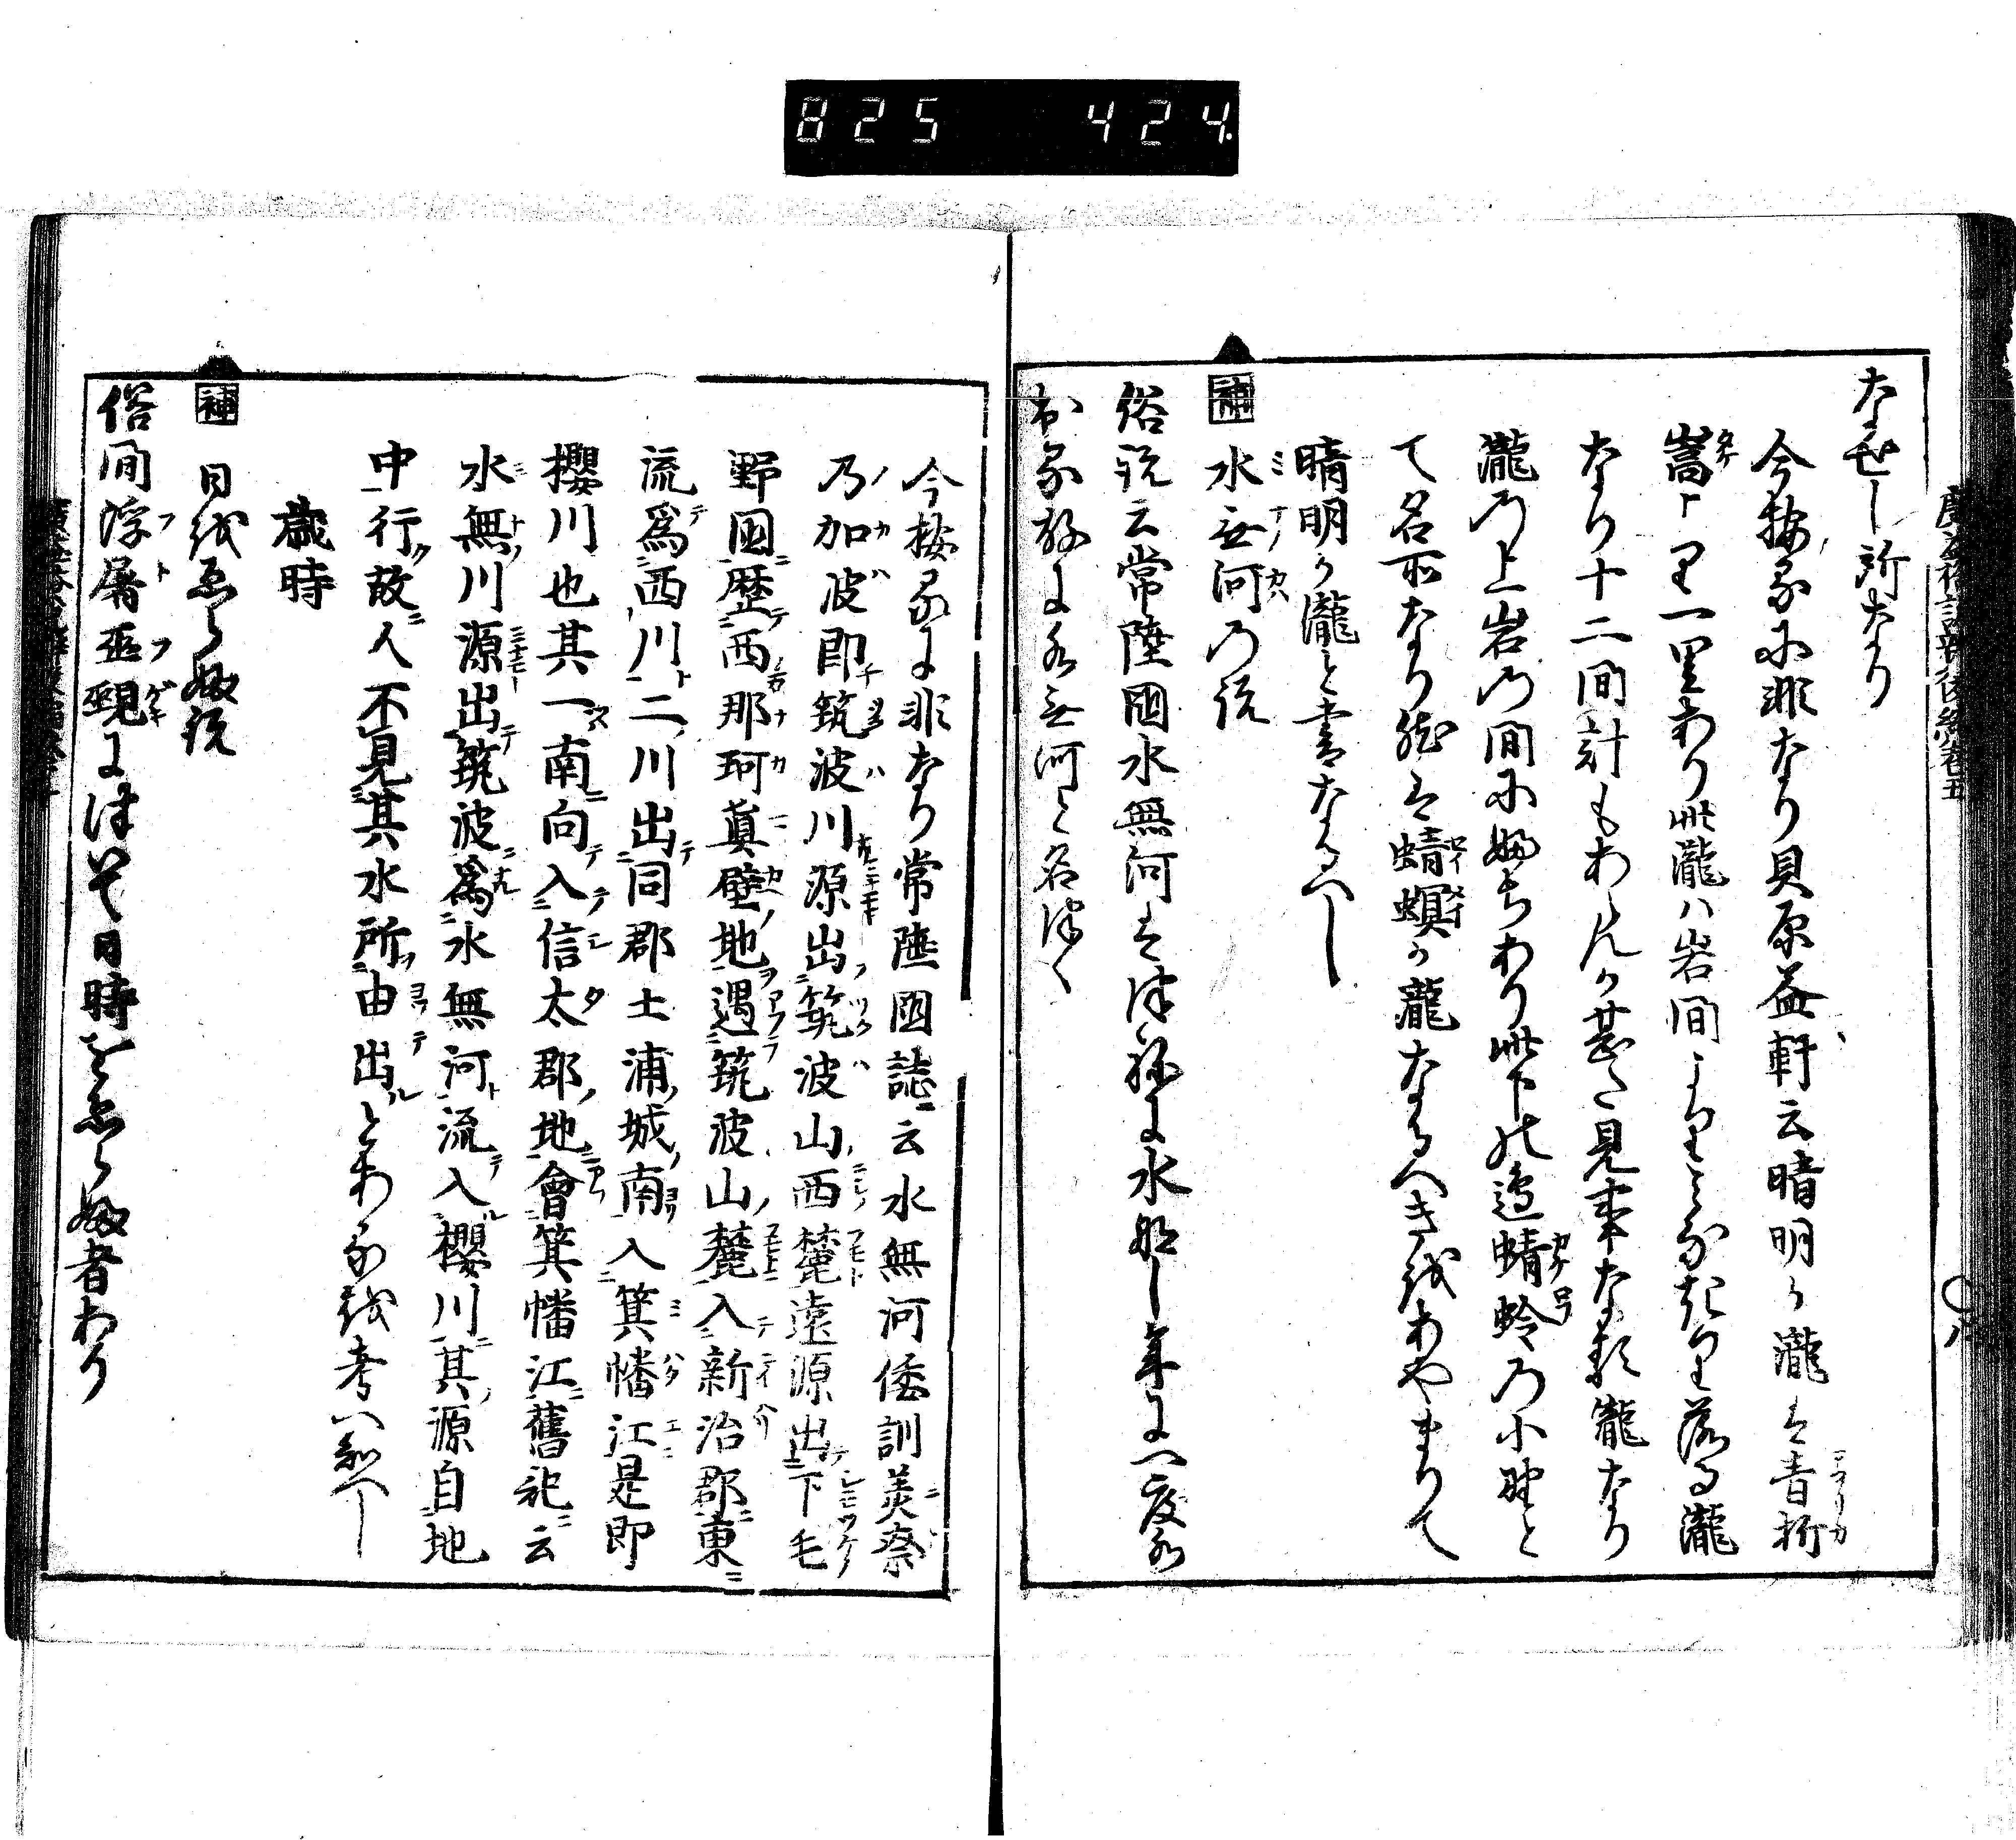 825 424
なせし所なり
今按るに非なり貝原益軒云晴明か瀧は音折
嵩より一里あり此瀧ハ岩間よりみなぎり落る瀧
なり十二間計もあらんか甚見事なる瀧なり
瀧の上岩の間にふちあり此下の邉蜻蛉の小野と
て名所なり然は蜻螟か瀧なるへきをあやまりて
晴明か瀧と書なるへし
補 水無河の説
俗説云常陸國水無河はつねに水なし年に一度水
出る故に水無河と名つく
今按るに非なり常陸國誌云水無河倭訓美奈
乃加波即筑波川源出筑波山西麓遠源出下毛
野国歴西那珂真壁地遇筑波山麓入新治郡東
流為西川二川出同郡土浦城南入箕幡江是即
櫻川也其一南向入信太郡地會箕幡江舊記云
水無川源出筑波為水無河流入櫻川其源自地
中行故人不見其水所由出とある越考へ知へし
歳時
補 日を忌ふ説
俗間浮屠巫覡に つて日時を ふ者あり